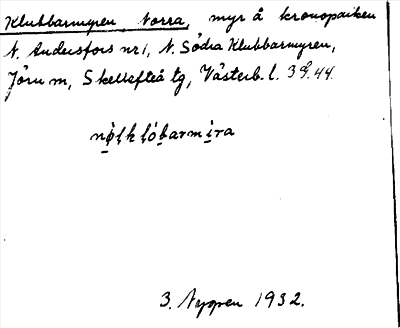 Klubbarmyren Norra, myr å kronoparken
N. Andersfors nr 1, N. Södra Klubbarmyren,
Jörn m, Skellefteå tg, Västerb. l. 39.44.
3. Nygren 1932.